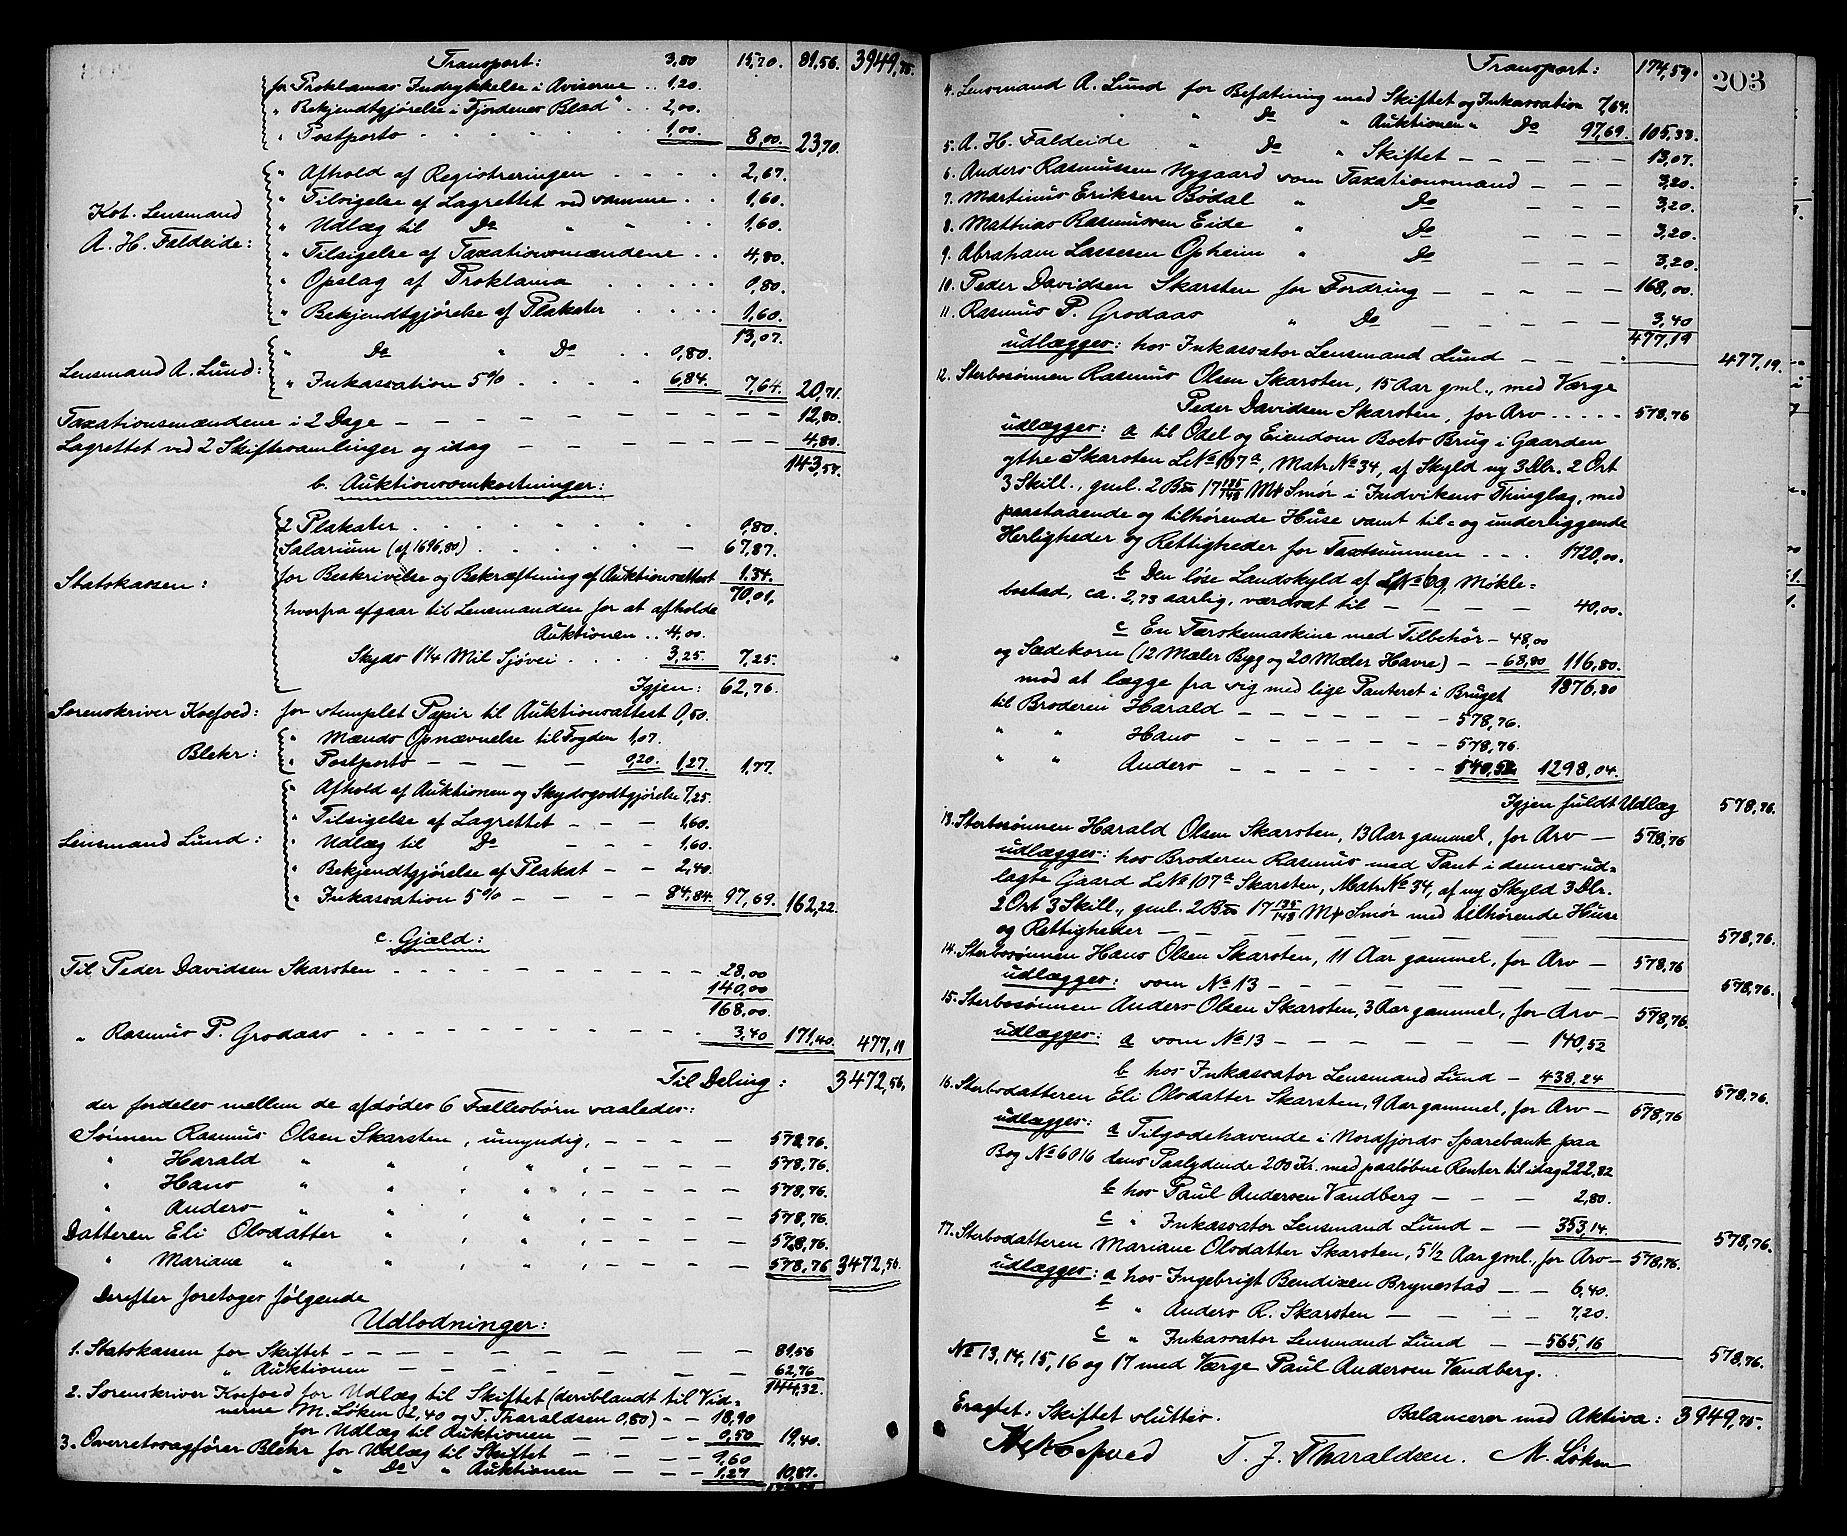 Transport: 3,80 15,70. 81,56. 3949,75.
for Proklamas Indrykkelse i Aviserne .. 1,20.
" Bekjendtgjørelse i "Fjordenes Blad" .. 2,00.
" Postporto . . . . . . 1,00. 8,00. 23,70.
" Afhold af Registreringen . . . . 2,67.
" Tilsigelse af Lagrettet ved samme . . 1,60.
Kst. Lensmand
" Udlæg til Do " " . . 1,60.
A. H. Faldeide:
" Tilsigelse af Taxationsmændene . . 4,80.
" Opslag af Proklama . . . . . 0,80.
" Bekjendtgjørelse af Plakater . . . . 1,60.
13,07.
" Do " Do . . 0,80.
Lensmand A. Lund:
" Inkassation 5% . . . . 6,84. 7,64. 20,71.
Taxationsmændene i 2 Dage — — — — — — — — 12,80.
Lagrettet ved 2 Skiftesamlinger og idag — — — — — — 4,80.
143,57.
b. Auktionsomkostninger:
2 Plakater . . . . . . . . 0,80.
Salarium (af 1696,80) . . . . . — 67,87.
for Beskrivelse og Bekræftning af Auktionsattest 1,34.
Statskassen: 70,01.
hvorfra afgaar til Lensmanden for at afholde
Auktionen .. 4,00.
Skyds 1 1/4 Mil Sjøvei . . . . 3,25. 7,25.
Igjen: 62,76.
Sorenskriver Koefoed: for stemplet Papir til Auktionsattest 0,50.
" Mænds Opnævnelse til Fogden 1,07.
Blekr:
" Postporto — — — — — 0,20. 1,27. 1,77.
" Afhold af Auktionen og Skydsgodtgjørelse 7,25.
" Tilsigelse af Lagrettet — — — 1,60.
Lensmand Lund: " Udlæg til Do — — — 1,60.
" Bekjendtgjørelse af Plakat — — 2,40.
" Inkassation 5% — — — — 84,84. 97,69. 162,22.
c. Gjæld:
Til Peder Davidsen Skarsten . . . . . . . . . 28,00
140,00
168,00.
" Rasmus P. Grodaas . . . . . . . . . . 3,40 171,40. 477,19
Til Deling: 3472,56.
der fordeles mellem de afdødes 6 Fællesbørn saaledes:
Sønnen Rasmus Olsen Skarsten, umyndig, — — — — 578,76.
" Harald " " , " , — — — — 578,76.
" Hans " " , " , — — — — 578,76.
" Anders " " , " , — — — — 578,76.
Datteren Eli Olsdatter " , " , — — — — 578,76.
" Mariane " " , " , — — — — 578,76 3472,56.
Derefter foretages følgende
Udlodninger:
1. Statskassen for Skiftet — — — — — — — — 81,56
" Auktionen — — — — — — — 62,76
144,32.
2. Sorenskriver Koefoed for Udlæg til Skiftet (deriblandt til Vid-
nerne M. Løken 2,40 og T. Tharaldsen 0,80) — — 18,90
for Udlæg til Auktionen — — — — 0,50 19,40.
3. Overretssagfører Blekr for Udlæg til Skiftet — — — — 9,60
" Do " Auktionen — — — 1,27 10,87.
203
Transport: 174,59.
4. Lensmand A. Lund for Befatning med Skiftet og Inkassation 7,64.
" " Do " Auktionen " Do 97,69. 105,33.
5. A. H. Faldeide " Do " Skiftet — — — — — 13,07.
6. Anders Rasmussen Nygaard som Taxationsmand — — — 3,20.
7. Martinus Eriksen Bødal " Do — — — 3,20.
8. Mathias Rasmussen Eide " Do — — — 3,20.
9. Abraham Lassesen Opheim " Do — — — 3,20.
10. Peder Davidsen Skarsten for Fordring — — — — — 168,00.
11. Rasmus P. Grodaas " Do — — — — — 3,40
477,19
udlægges: hos Inkassator Lensmand Lund — — — 477,19.
12. Sterbosønnen Rasmus Olsen Skarsten, 15 Aar gml., med Værge
Peder Davidsen Skarsten, for Arv . . . . . 578,76
udlægges: a til Odel og Eiendom Boets Brug i Gaarden
ytre Skarsten LNo 107a, Matr No 34, af Skyld ny 3 Dlr. 2 Ort
3 Skill., gml. 2 Bpd 17 135/148 Mk Smør i Indvikens Thinglag, med
paastaaende og tilhørende Huse samt til- og underliggende
Herligheder og Rettigheder for Taxtsummen . . . 1720,00.
b Den løse Landskyld af LNo 69, Møkle-
bostad, ca. 2,73 aarlig, værdsat til — — — — 40,00.
c En Tærskemaskine med Tilbehør — 48,00
og Sædekorn (12 Mæler Byg og 20 Mæler Havre) — — 68,80 116,80.
mod at lægge fra sig med lige Panteret i Bruget 1876,80
til Broderen Harald — — — — — — — 578,76.
" " Hans — — — — — — — 578,76.
" " Anders — — — — — — 140,52 1298,04.
Igjen fuldt Udlæg 578,76.
13. Sterbosønnen Harald Olsen Skarsten, 13 Aar gammel, for Arv — 578,76
udlægges: hos Broderen Rasmus med Pant i dennes ud-
lagte Gaard LNo 107a Skarsten, Matr No 34, af ny Skyld 3 Dlr.
2 Ort 3 Skill., gml. 2 Bpd 17 135/148 Mk Smør med tilhørende Huse
og Rettigheder — — — — — — — — — — 578,76.
14. Sterbosønnen Hans Olsen Skarsten, 11 Aar gammel, for Arv — 578,76
udlægges: som No 13 — — — — — — — — 578,76.
15. Sterbosønnen Anders Olsen Skarsten, 3 Aar gammel, for Arv — 578,76.
udlægges: a som No 13 — — — — — — 140,52
b hos Inkassator Lensmand Lund — 438,24 578,76.
16. Sterbodatteren Eli Olsdatter Skarsten, 9 Aar gammel, for Arv — 578,76
udlægges: a Tilgodehavende i Nordfjords Sparebank paa
Bog No 6016 dens Paalydende 200 Kr. med paaløbne Renter til idag 222,82
b hos Paul Andersen Vandberg — — — 2,80.
c " Inkassator Lensmand Lund — — 353,14. 578,76.
17. Sterbodatteren Mariane Olsdatter Skarsten, 5 1/2 Aar gml., for Arv — 578,76.
udlægges: a hos Ingebrigt Bendixen Brynestad — — 6,40.
b " Anders R. Skarsten — — — — 7,20.
c " Inkassator Lensmand Lund — — 565,16 578,76.
No 13, 14, 15, 16 og 17 med Værge Paul Andersen Vandberg.
Eragtet: Skiftet sluttes. Balancerer med Aktiva: 3949,75.
Koefoed T. J. Tharaldsen. M. Løken